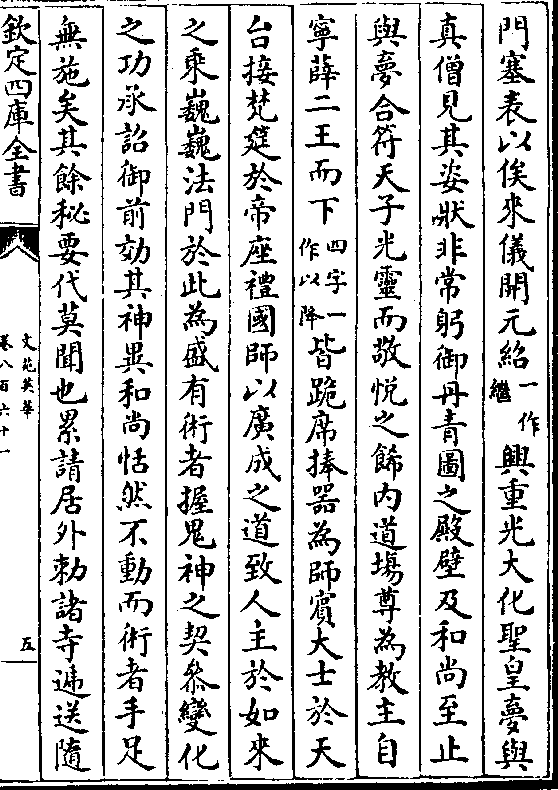 門塞表以俟來儀開元紹一作繼興重光大化聖皇夢與
真僧見其姿狀非常躬御丹青圖之殿壁及和尚至止
與夢合符天子光靈而敬悅之飾內道場尊為教主自
寧薛二王而下四字一作以降皆跪席捧器為師賓大士於天
台接梵筵於帝座禮國師以廣成之道致人主於如來
之乘巍巍法門於此為盛有術者握鬼神之契叅變化
之功承詔御前効其神異和尚恬然不動而術者手足
無施矣其餘秘要代莫聞也累請居外勅諸寺遞送隨
欽定四庫全書
文苑英華
卷八百六十一
五